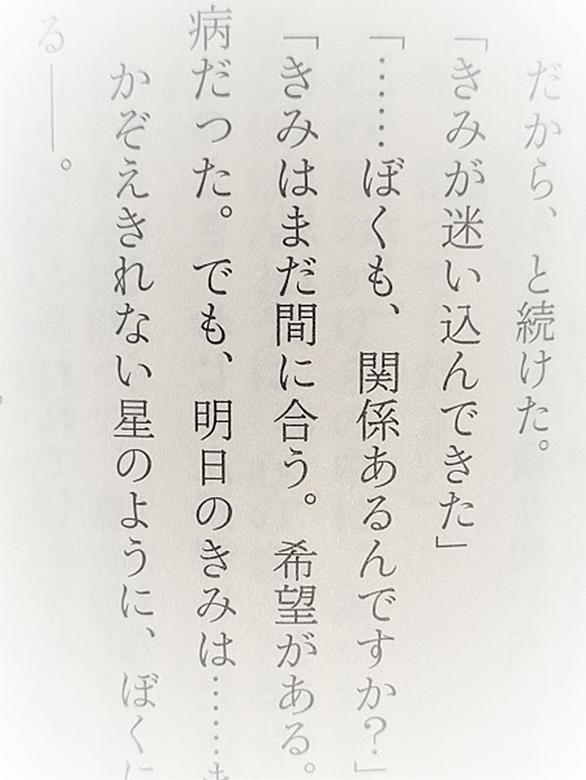 だから、と続けた。
「きみが迷い込んできた」
「……ぼくも、関係あるんですか?」
「きみはまだ間に合う。希望がある。
病だった。でも、明日のきみは……
かぞえきれない星のように、ぼくに
る――。